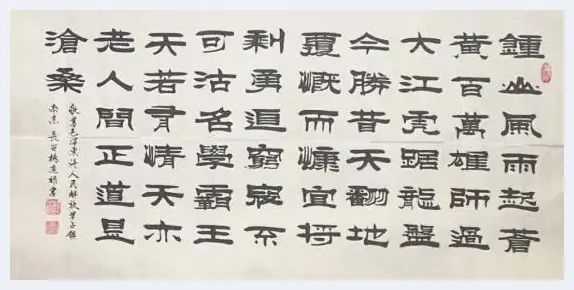 鍾山風雨起蒼
黃百萬雄師過
大江虎踞龍盤
今勝昔天翻地
覆慨而慷宜將
剩勇追窮寇不
可沽名學霸王
天若有情天亦
老人間正道是
滄桑
敬書毛澤東詩人民解放軍占領
南京